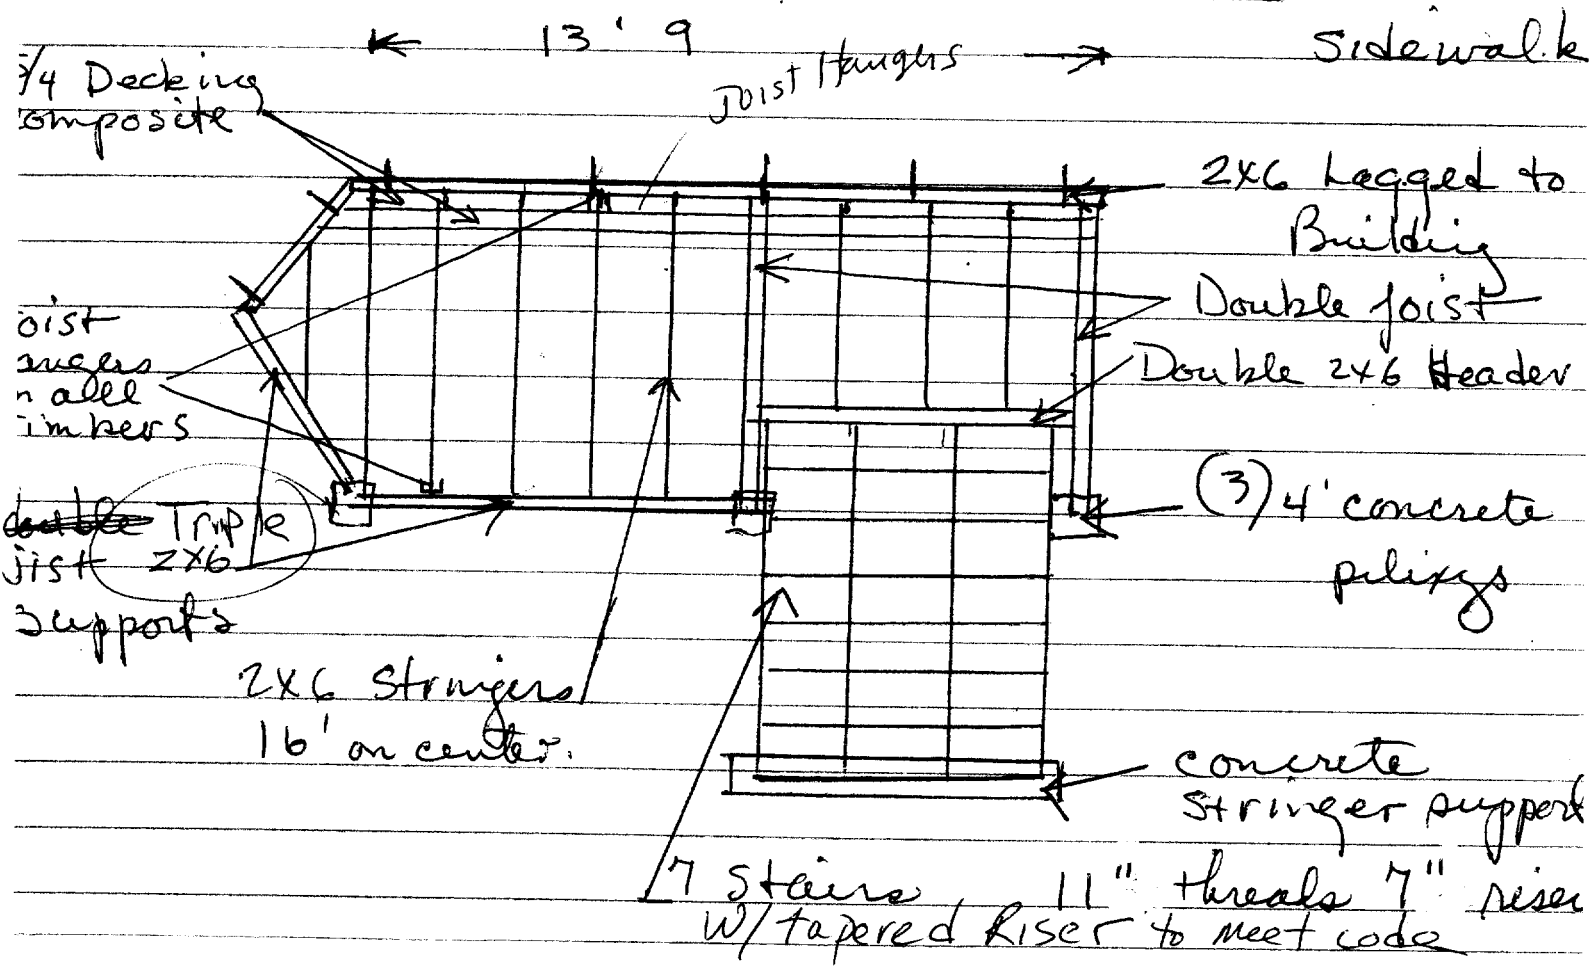 13' 9
Sidewalk
5/4 Decking
composite
Joist Hangers
2x6 Lagged to
Building
Double Joist
Double 2x6 Header
oist
angers
n all
Timbers
(3) 4' concrete
pilixgs
double Triple
jist 2x6
supports
2x6 Stringers
16' on center.
concrete
stringer support
7 Stairs, 11" threads 7" riser
W/ tapered Riser to meet code